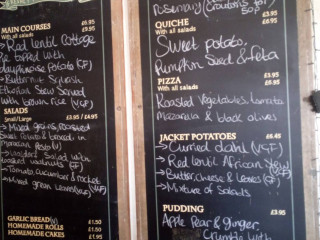 MAIN COURSES £6.95
With all salads £3.95
→ Red lentil Cottage
Pie topped with
dauphinoise Potato (GF)
→ Butternut Squash
Stew Served
with brown rice (V,GF)
SALADS
Small/Large £3.95 / £4.95
→ Mixed grains, roasted
Sweet Potato & bread in
pesto
Salad with
toasted walnuts (GF)
→ Tomato, cucumber & rocket
→ Mixed green leaves (V,GF)
GARLIC BREAD(v) £1.50
HOMEMADE ROLLS £1.50
HOMEMADE CAKES £1.95
rosemary Croutons for
50p
QUICHE £6.95
With all salads £3.95
Sweet potato,
Pumpkin Seed & feta
PIZZA £6.95
With all salads £3.95
Roasted Vegetables, tomato
Mozzarella & black olives
JACKET POTATOES £6.45
→ Curried dahl (V,GF)
→ Red lentil African Stew
→ Butter, cheese & leaves (GF)
→ Mixture of Salads
PUDDING £3.95
Apple Pear & ginger
Crumble with